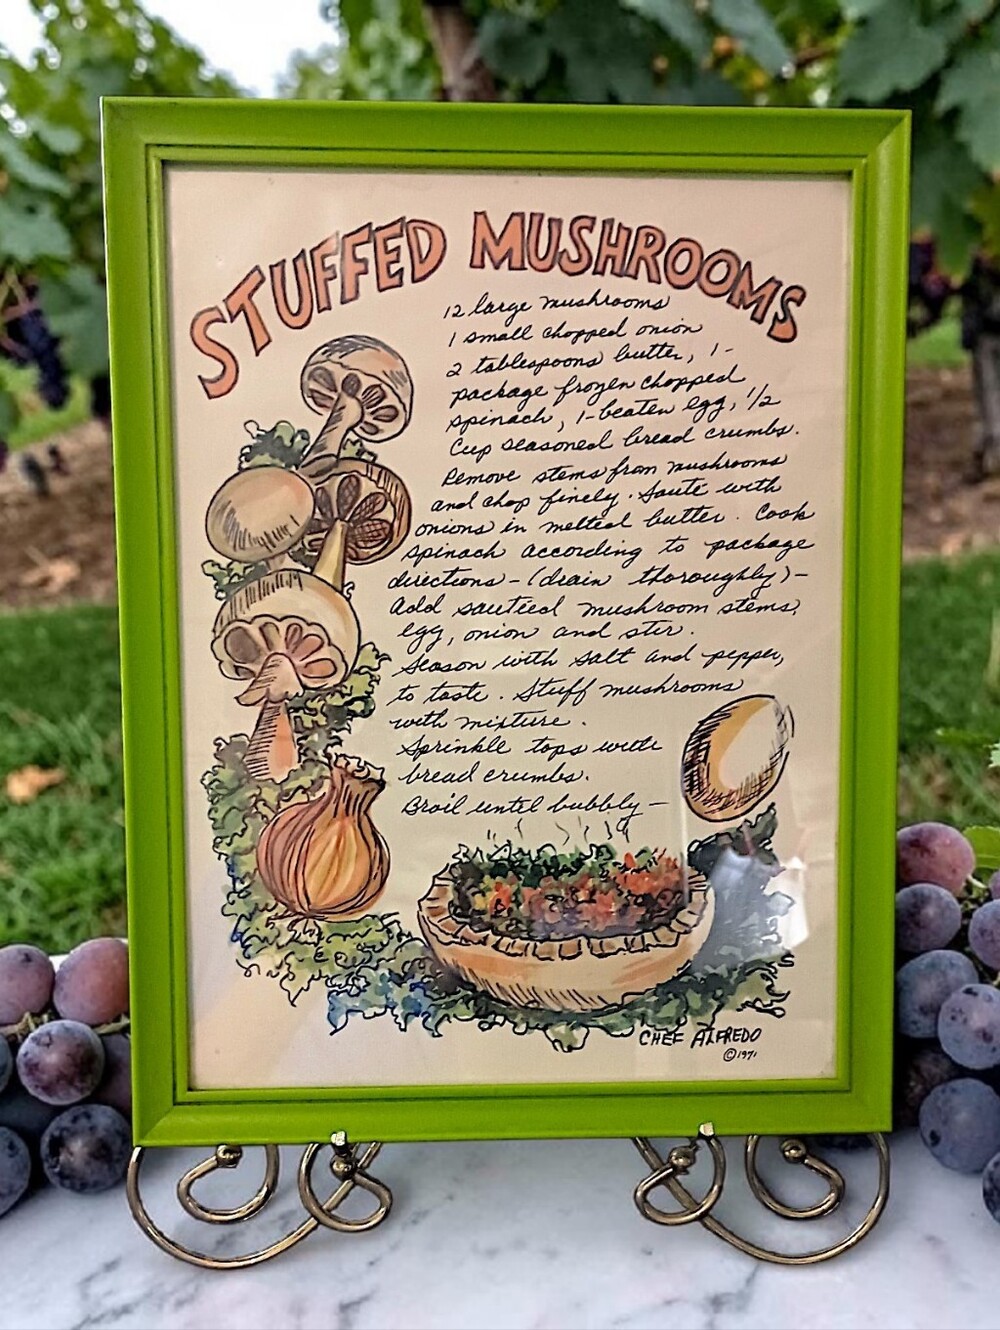 STUFFED MUSHROOMS
12 large mushrooms
1 small chopped onion
2 tablespoons butter, 1-
package frozen chopped
spinach, 1-beaten egg, 1/2
Cup seasoned bread crumbs.
Remove stems from mushrooms
and chop finely. Sauté with
onions in melted butter. Cook
spinach according to package
directions - (drain thoroughly) -
Add sautéed mushroom stems,
egg, onion and stir.
Season with salt and pepper,
to taste. Stuff mushrooms
with mixture.
Sprinkle tops with
bread crumbs.
Broil until bubbly -
CHEF ALFREDO
© 1971